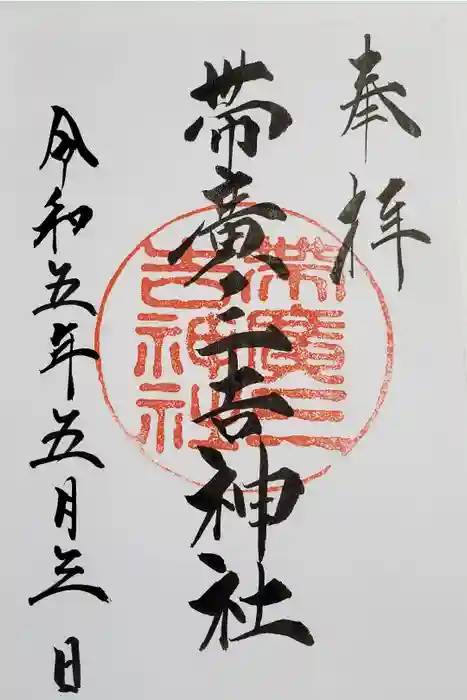 奉拝
帯廣三吉神社
帯廣三吉神社
令和五年五月三日